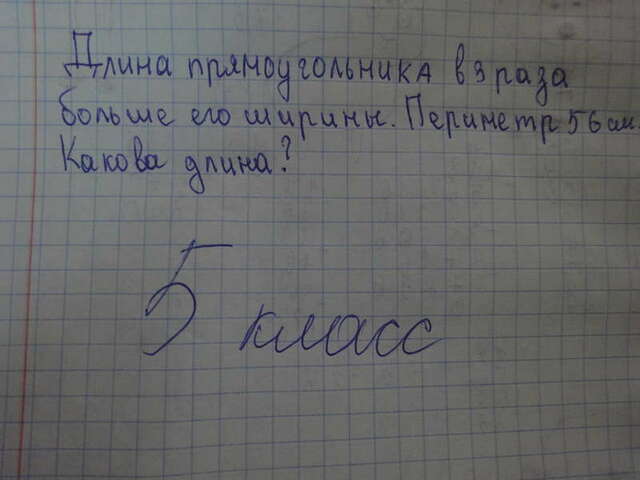 Длина прямоугольника в 3 раза
больше его ширины. Периметр 56 см.
Какова длина?
5 класс